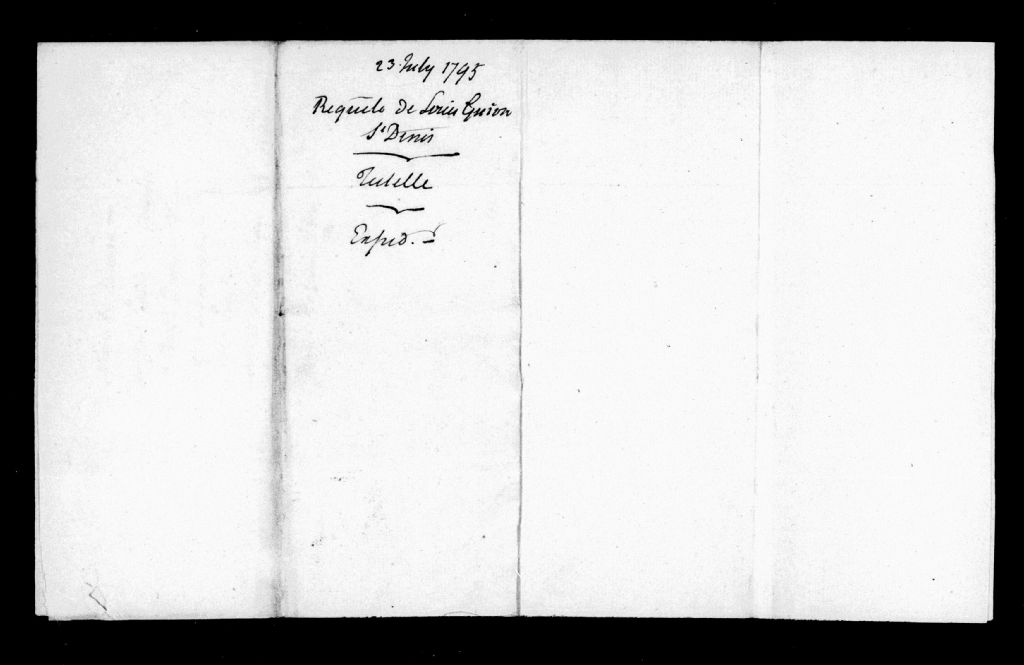 23 July 1795
Requête de Louis Guion
St Denis
Tutelle
Exped.